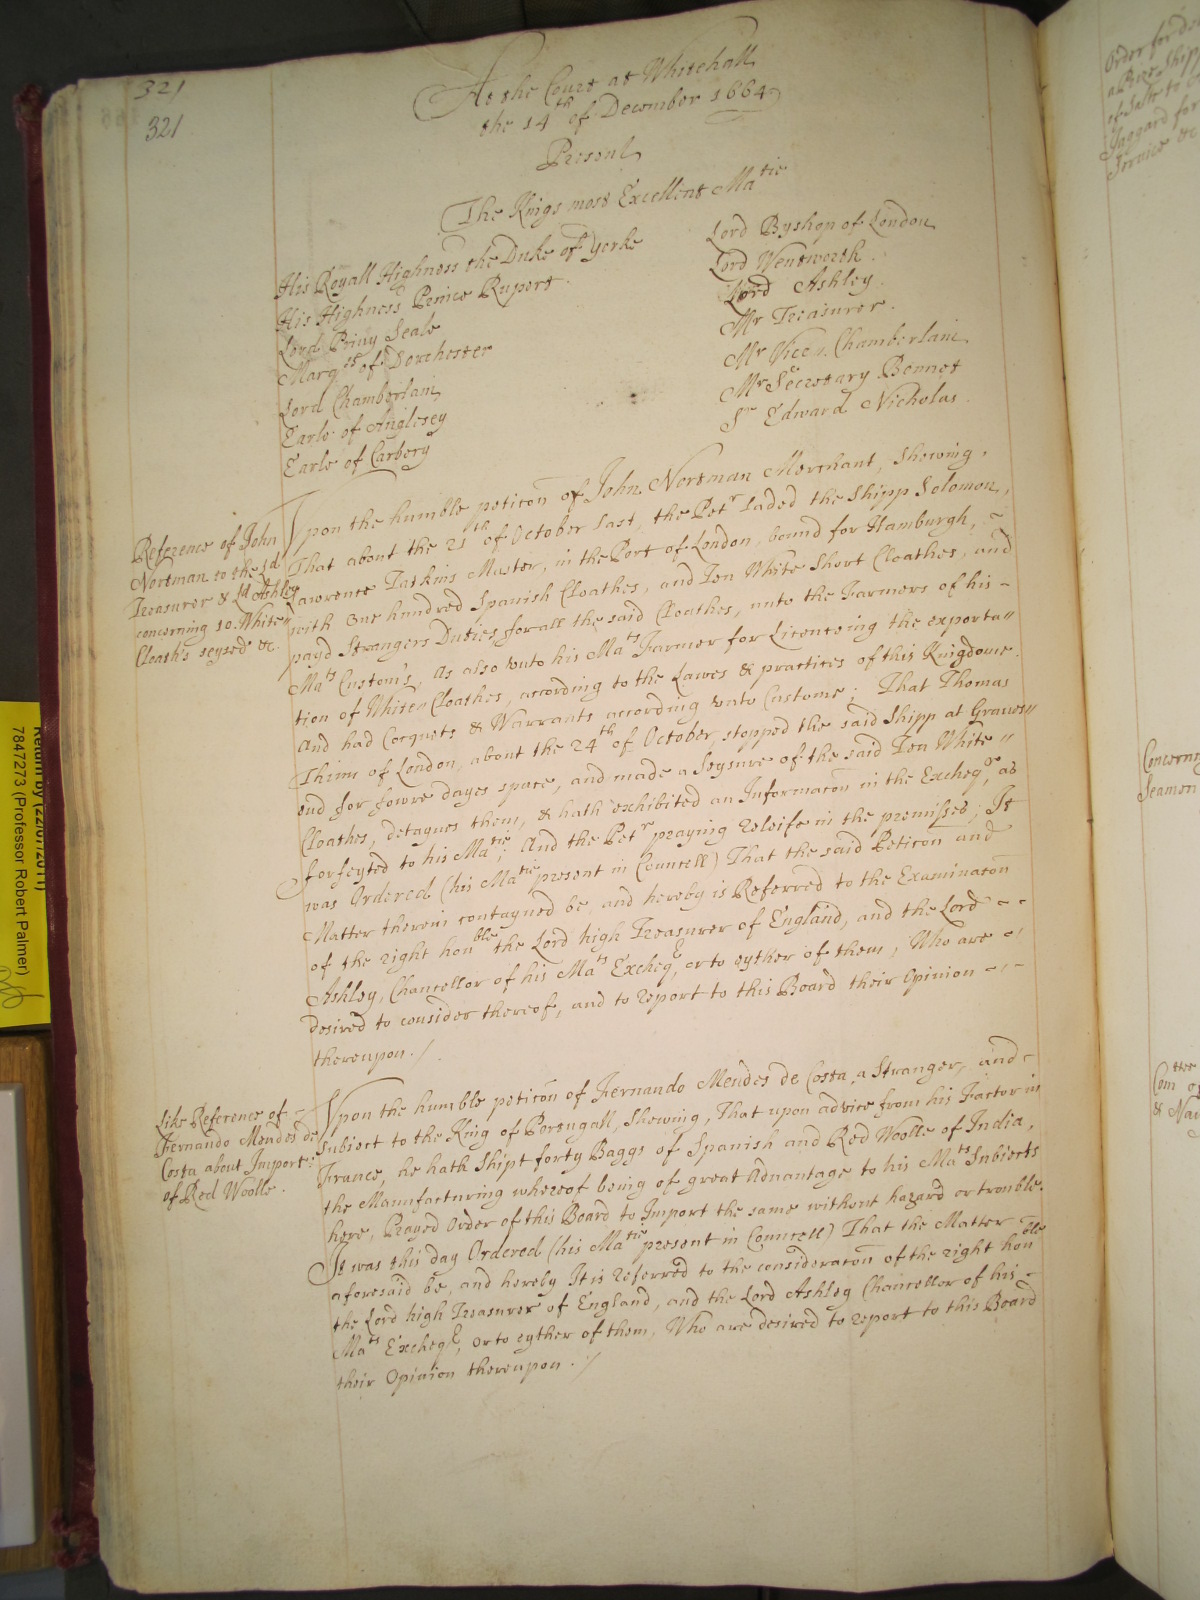 321
321
At the Court at Whitehall
the 14th of December 1664
Present
The Kings most Excellent Matie
His Royall Highness the Duke of Yorke
His Highness Prince Rupert.
Lord Privy Seale
Marqes of Dorchester
Lord Chamberlain
Earle of Anglesey
Earle of Carbery
Lord Byshop of London
Lord Wentworth.
Lord Ashley.
Mr Treasurer.
Mr Vice Chamberlain
Mr Secretary Bennet
Sr Edward Nicholas.
Reference of John
Nortman to the Ld
Treasurer & Ld Ashley
concerning 10. White
Cloath's seysed &c.
Upon the humble peticon of John Nortman Merchant, Shewing,
That about the 21th of October last, the Petr laded the Shipp Solomon,
Lawrence Master, in the Port of London, bound for Hamburgh,
with One hundred Spanish Cloathes, and Ten White Short Cloathes, and
payd Strangers Duties for all the said Cloathes, unto the Farmers of his
Mats Custom's, As also unto his Mats Farmer for Licenceing the exporta"
tion of White Cloathes, according to the Lawes & practices of this Kingdome.
And had Cocquets & Warrants according unto Custome; That Thomas
Thinn of London, about the 24th of October stopped the said Shipp at Graves"
end for fowre dayes space, and made a Seysure of the said Ten White"
Cloathes, detaynes them, & hath exhibited an Informacon in the Excheqr, as
forfeyted to his Matie; And the Petr praying releife in the premisses; It
was Ordered (his Matie present in Councell) That the said Peticon and
Matter therein contayned be, and hereby is Referred to the Examinacon
of the right honble the Lord high Treasurer of England, and the Lord
Ashley, Chancellor of his Mats Excheqr, or to eyther of them, Who are
desired to consider thereof, and to report to this Board their Opinion
thereupon./
Like Reference of
Fernando Mendes de
Costa about Import:
of Red Woolle.
Upon the humble peticon of Fernando Mendes de Costa, a Stranger, and
Subiect to the King of Portugall, Shewing, That upon advice from his Factor in
France, he hath Shipt forty Baggs of Spanish and Red Woolle of India,
the Manufacturing whereof being of great Advantage to his Mats Subiects
here, Prayed Order of this Board to Import the same without hazard or trouble.
It was this day Ordered (his Matie present in Councell) That the Matter
aforesaid be, and hereby It is referred to the consideracon of the right honble
the Lord high Treasurer of England, and the Lord Ashley Chancellor of his
Mats Excheqr, or to eyther of them, Who are desired to report to this Board
their Opinion thereupon./
Return by (22/07/2011)
7847273 (Professor Robert Palmer)
Order for
a Prize Shipp
of Salt to
Jaggard for
Service &c
Concerning
Seamen
Comttee